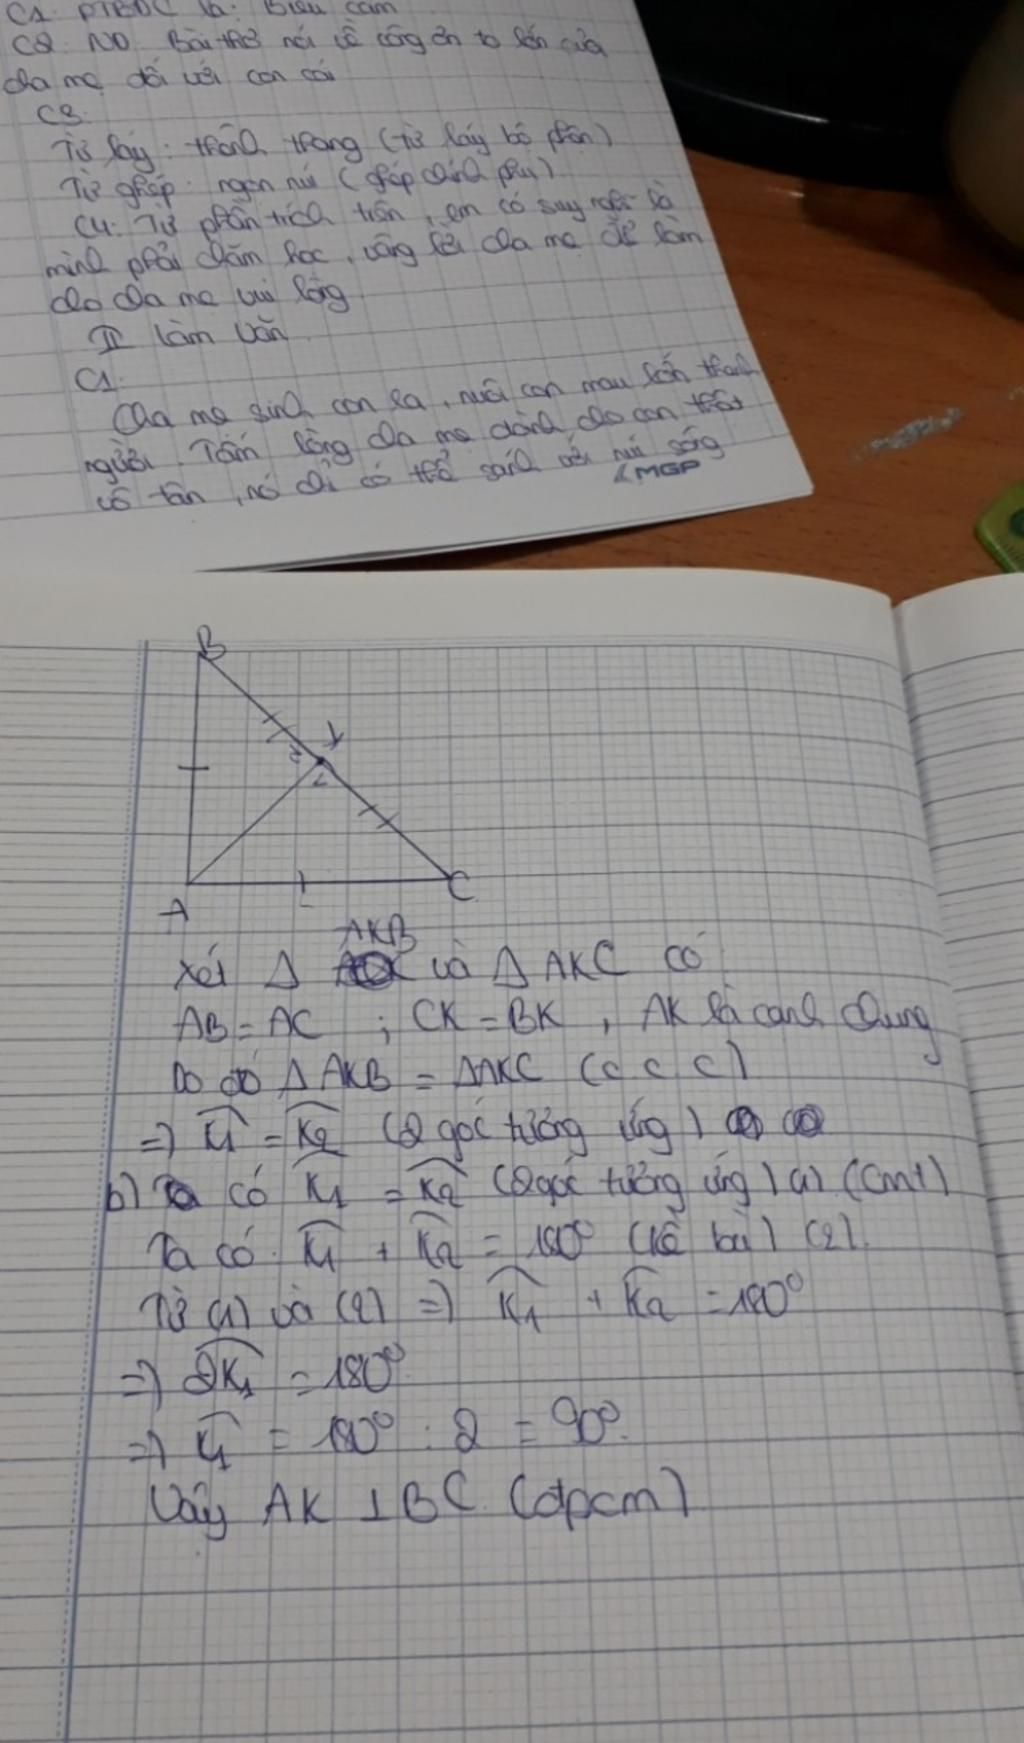 C1. PTBĐC là: Biểu cảm
C2. ND Bài thơ nói về công ơn to lớn của
cha mẹ đối với con cái
C3.
Từ láy: thênh thang (từ láy bộ phận)
Từ ghép: ngọn núi (ghép chính phụ)
C4: Từ phân tích trên, em có suy nghĩ là
mình phải chăm học, vâng lời cha mẹ để làm
cho cha mẹ vui lòng
II Làm văn
C1.
Cha mẹ sinh con ra, nuôi con mau lớn thành
người. Tấm lòng cha mẹ dành cho con thật
vô tận, nó chỉ có thể sánh với núi sông
MGP
B
K
2
1
A
C
AKB
Xét Δ và Δ AKC có
AB = AC ; CK = BK, AK là cạnh chung
Do đó Δ AKB = ΔAKC (c c c)
=> K1 = K2 (2 góc tương ứng)
b) Ta có K1 = K2 (2 góc tương ứng) (1) (cmt)
Ta có K1 + K2 = 180° (kề bù) (2).
Từ (1) và (2) => K1 + K2 = 180°
=> 2K1 = 180°
=> K1 = 180° : 2 = 90°.
Vậy AK ⊥ BC (đpcm)